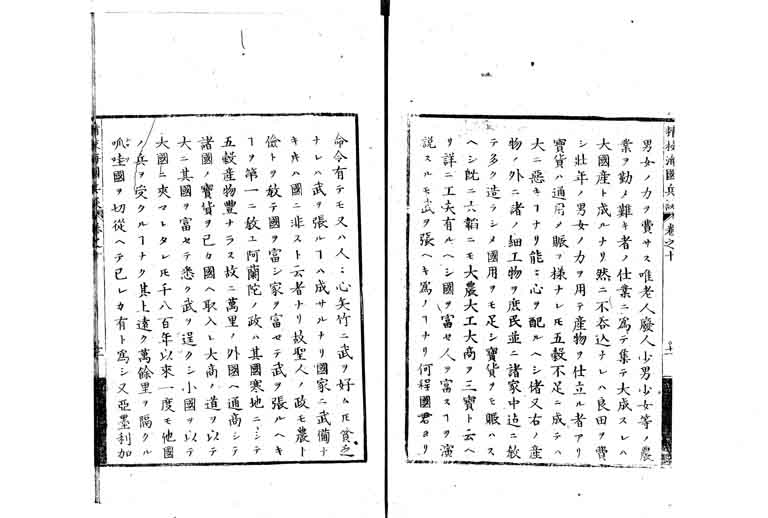 男女ノ力ヲ費サス唯老人廢人少男少女等ノ農
業ヲ勤メ難キ者ノ仕業ニ爲テ集テ大成スレハ
大國産ト成ルナリ然ニ不呑込ナレハ良田ヲ費
シ壯年ノ男女ノ力ヲ用テ産物ヲ仕立ル者アリ
寳貨ハ通用メ賑フ様ナレ𪜈五穀不足ニ成テハ
大ニ惡キヿナリ能〻心ヲ配ルヘシ偖又右ノ産
物ノ外ニ諸ノ細工物ヲ庶民並ニ諸家中迠ニ敎
テ多ク造ラシメ國用ヲモ足シ寳貨ヲモ賑ハス
ヘシ此ニ六韜ニモ大農大工大商ヲ三寳ト云ヘ
リ詳ニ工夫有ルヘシ國ヲ富セ人ヲ富スヿヲ演
説スルモ武ヲ張ヘキ爲ノヿナリ何程國君ヨリ
命令有テモ又ハ人〻心矢竹ニ武ヲ好ム𪜈貧乏
ナレハ武ヲ張ルヿハ成サルナリ國家ニ武備ナ
キ𪜈ハ國ニ非スト云者ナリ故聖人ノ政モ農ト
儉トヲ敎テ國ヲ富シ家ヲ富セテ武ヲ張ルヘキ
ヿヲ第一ニ敎エ阿蘭陀ノ政ハ其國寒地ニシテ
五穀産物豐ナラス故ニ萬里ノ外國ヘ通商シテ
諸國ノ寳貨ヲ己カ國ヘ取入レ大商ノ道ヲ以テ
大ニ其國ヲ富セテ悉ク武ヲ逞クシ小國ヲ以テ
大國ニ夾マレタレ𪜈千八百年以來一度モ他國
ノ兵ヲ受クルヿナク其上遠ク萬餘里ヲ隔クル
呱哇國ヲ切從ヘテ已レカ有ト爲シ又亞墨利加